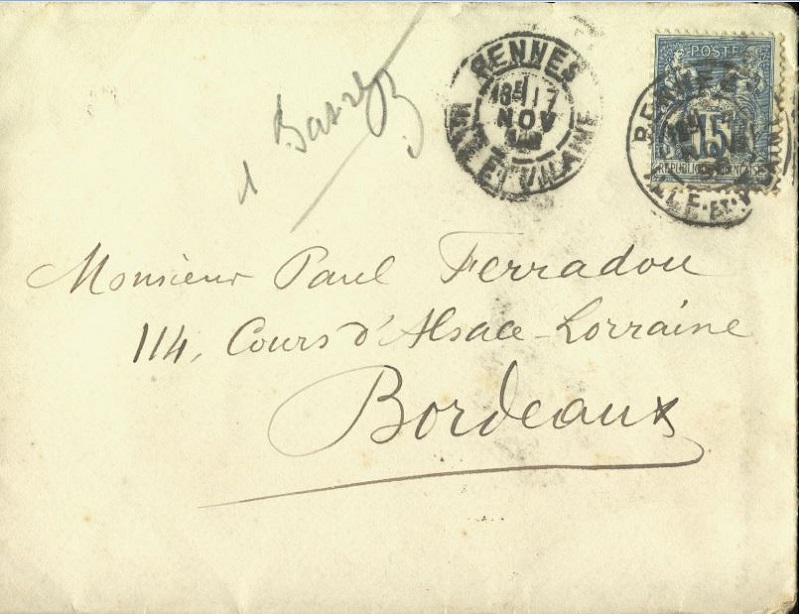 RENNES
17
NOV
ILLE ET VILAINE
POSTE
15
REPUBLIQUE FRANÇAISE
RENNES
ILLE-ET-VILAINE
Monsieur Paul Ferradou
114, Cours d'Alsace-Lorraine
Bordeaux